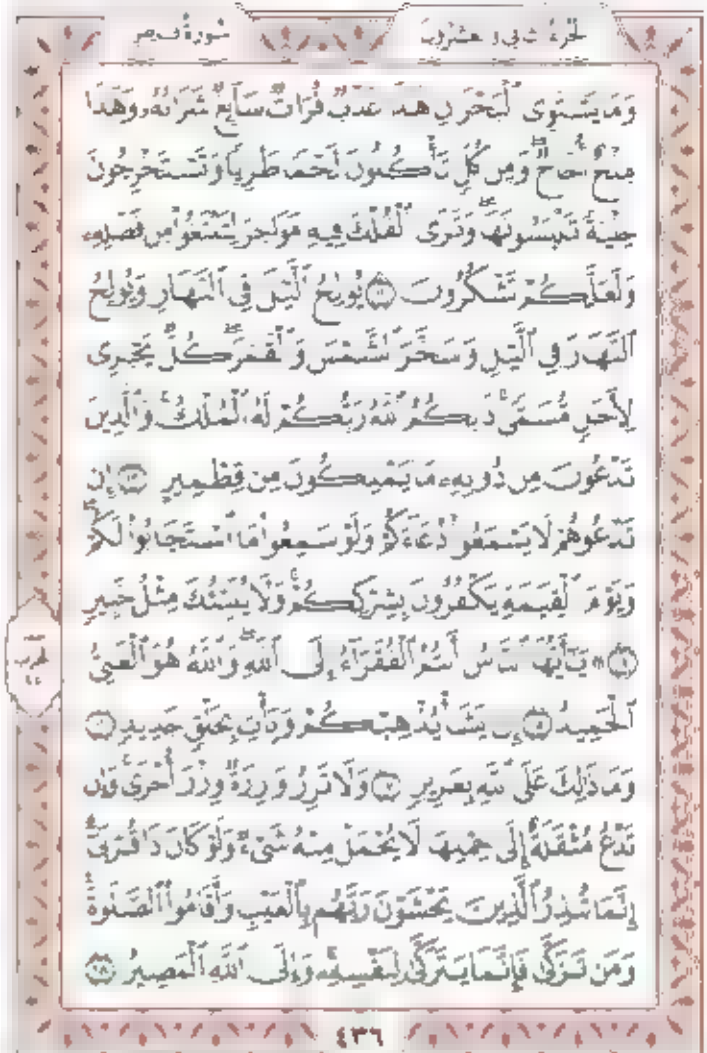 سورة فاطر
الجزء الثاني و عشرون
وَمَا يَسْتَوِى ٱلْبَحْرَانِ هَٰذَا عَذْبٌ فُرَاتٌ سَآئِغٌ شَرَابُهُۥ وَهَٰذَا
مِلْحٌ أُجَاجٌ ۖ وَمِن كُلٍّ تَأْكُلُونَ لَحْمًا طَرِيًّا وَتَسْتَخْرِجُونَ
حِلْيَةً تَلْبَسُونَهَا ۖ وَتَرَى ٱلْفُلْكَ فِيهِ مَوَاخِرَ لِتَبْتَغُوا۟ مِن فَضْلِهِۦ
وَلَعَلَّكُمْ تَشْكُرُونَ ١٢ يُولِجُ ٱلَّيْلَ فِى ٱلنَّهَارِ وَيُولِجُ
ٱلنَّهَارَ فِى ٱلَّيْلِ وَسَخَّرَ ٱلشَّمْسَ وَٱلْقَمَرَ ۖ كُلٌّ يَجْرِى
لِأَجَلٍ مُّسَمًّى ۚ ذَٰلِكُمُ ٱللَّهُ رَبُّكُمْ لَهُ ٱلْمُلْكُ ۚ وَٱلَّذِينَ
تَدْعُونَ مِن دُونِهِۦ مَا يَمْلِكُونَ مِن قِطْمِيرٍ ١٣ إِن
تَدْعُوهُمْ لَا يَسْمَعُوا۟ دُعَآءَكُمْ وَلَوْ سَمِعُوا۟ مَا ٱسْتَجَابُوا۟ لَكُمْ ۖ
وَيَوْمَ ٱلْقِيَٰمَةِ يَكْفُرُونَ بِشِرْكِكُمْ ۚ وَلَا يُنَبِّئُكَ مِثْلُ خَبِيرٍ
١٤ ۞ يَٰٓأَيُّهَا ٱلنَّاسُ أَنتُمُ ٱلْفُقَرَآءُ إِلَى ٱللَّهِ ۖ وَٱللَّهُ هُوَ ٱلْغَنِىُّ
ٱلْحَمِيدُ ١٥ إِن يَشَأْ يُذْهِبْكُمْ وَيَأْتِ بِخَلْقٍ جَدِيدٍ ١٦
وَمَا ذَٰلِكَ عَلَى ٱللَّهِ بِعَزِيزٍ ١٧ وَلَا تَزِرُ وَازِرَةٌ وِزْرَ أُخْرَىٰ ۚ وَإِن
تَدْعُ مُثْقَلَةٌ إِلَىٰ حِمْلِهَا لَا يُحْمَلْ مِنْهُ شَىْءٌ وَلَوْ كَانَ ذَا قُرْبَىٰٓ ۗ
إِنَّمَا تُنذِرُ ٱلَّذِينَ يَخْشَوْنَ رَبَّهُم بِٱلْغَيْبِ وَأَقَامُوا۟ ٱلصَّلَوٰةَ ۚ
وَمَن تَزَكَّىٰ فَإِنَّمَا يَتَزَكَّىٰ لِنَفْسِهِۦ ۚ وَإِلَى ٱللَّهِ ٱلْمَصِيرُ ١٨
الحزب
٤٤
٤٣٦